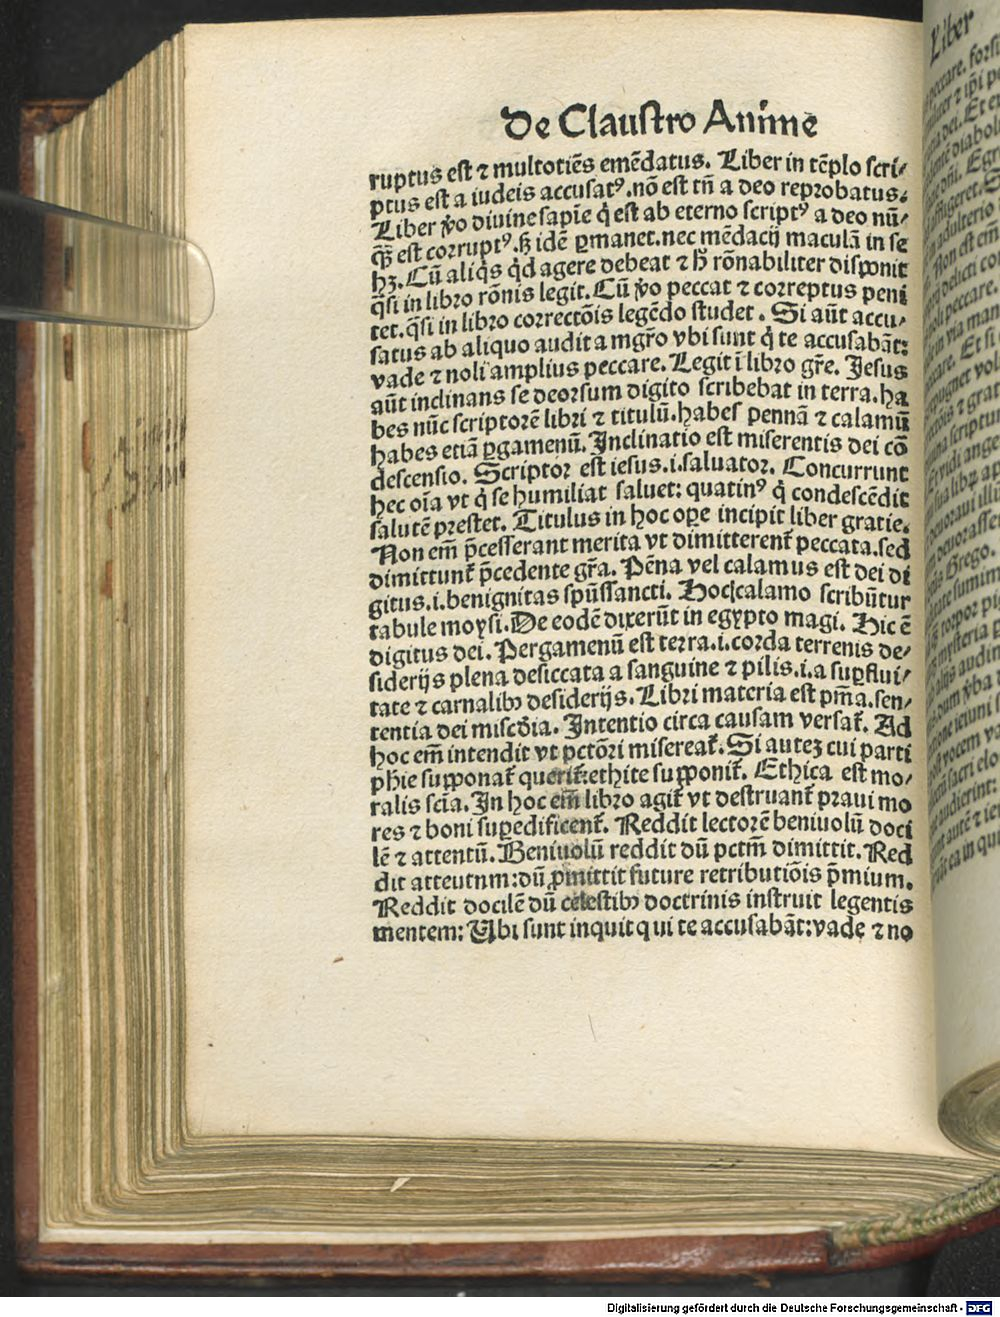 De Claustro Anime
ruptus est ⁊ multotiēs emēdatus. Liber in tēplo scri⸗
ptus est a iudeis accusatꝰ. nō est tn̄ a deo reprobatus.
Liber ꝟo diuine sapīe q̇ est ab eterno scriptꝰ a deo nū⸗
q̄ꝫ est corruptꝰ. sꝫ idē ꝑmanet. nec mēdacij maculā in se
hꝫ. Cū aliq̇s q̇d agere debeat ⁊ h̄ rōnabiliter disponit
q̄si in libro rōnis legit. Cū ꝟo peccat ⁊ correptus peni
tet. q̄si in libro correctōis legēdo studet. Si aūt accu⸗
satus ab aliquo audit a mgr̄o vbi sunt q̇ te accusabāt:
vade ⁊ noli amplius peccare. Legit ī libro gr̄e. Jesus
aūt inclinans se deorsum digito scribebat in terra. ha
bes nūc scriptorē libri ⁊ titulū. habes pennā ⁊ calamū
habes etiā ꝑgamenū. Inclinatio est miserentis dei cō
descensio. Scriptor est iesus .i. saluator. Concurrunt
hec oīa vt q̇ se humiliat saluet: quatinꝰ q̇ condescēdit
salutē prestet. Titulus in hoc oꝑe incipit liber gratie.
Non em̄ p̄cesserant merita vt dimitterent̄ peccata. sed
dimittunt̄ p̄cedente gr̄a. Pēna vel calamus est dei di
gitus .i. benignitas spūssancti. Hoc calamo scribūtur
tabule moysi. De eodē dixerūt in egypto magi. Hic ē
digitus dei. Pergamenū est terra .i. corda terrenis de⸗
siderijs plena desiccata a sanguine ⁊ pilis .i. a suꝑflui⸗
tate ⁊ carnalibꝫ desiderijs. Libri materia est pm̄a. sen⸗
tentia dei misc̄dia. Intentio circa causam versat̄. Ad
hoc em̄ intendit vt pctōri misereat̄. Si auteꝫ cui parti
phīe supponat̄ querit̄: ethite supponit̄. Ethica est mo⸗
ralis scīa. In hoc em̄ libro agit̄ vt destruant̄ praui mo
res ⁊ boni suꝑedificent̄. Reddit lectorē beniuolū doci
lē ⁊ attentū. Beniuolū reddit dū pctm̄ dimittit. Red
dit atteutnm: dū ꝓmittit future retributiōis p̄mium.
Reddit docilē dū celestibꝫ doctrinis instruit legentis
mentem: Ubi sunt inquit qui te accusabāt: vade ⁊ no
Liber
Digitalisierung gefördert durch die Deutsche Forschungsgemeinschaft - DFG